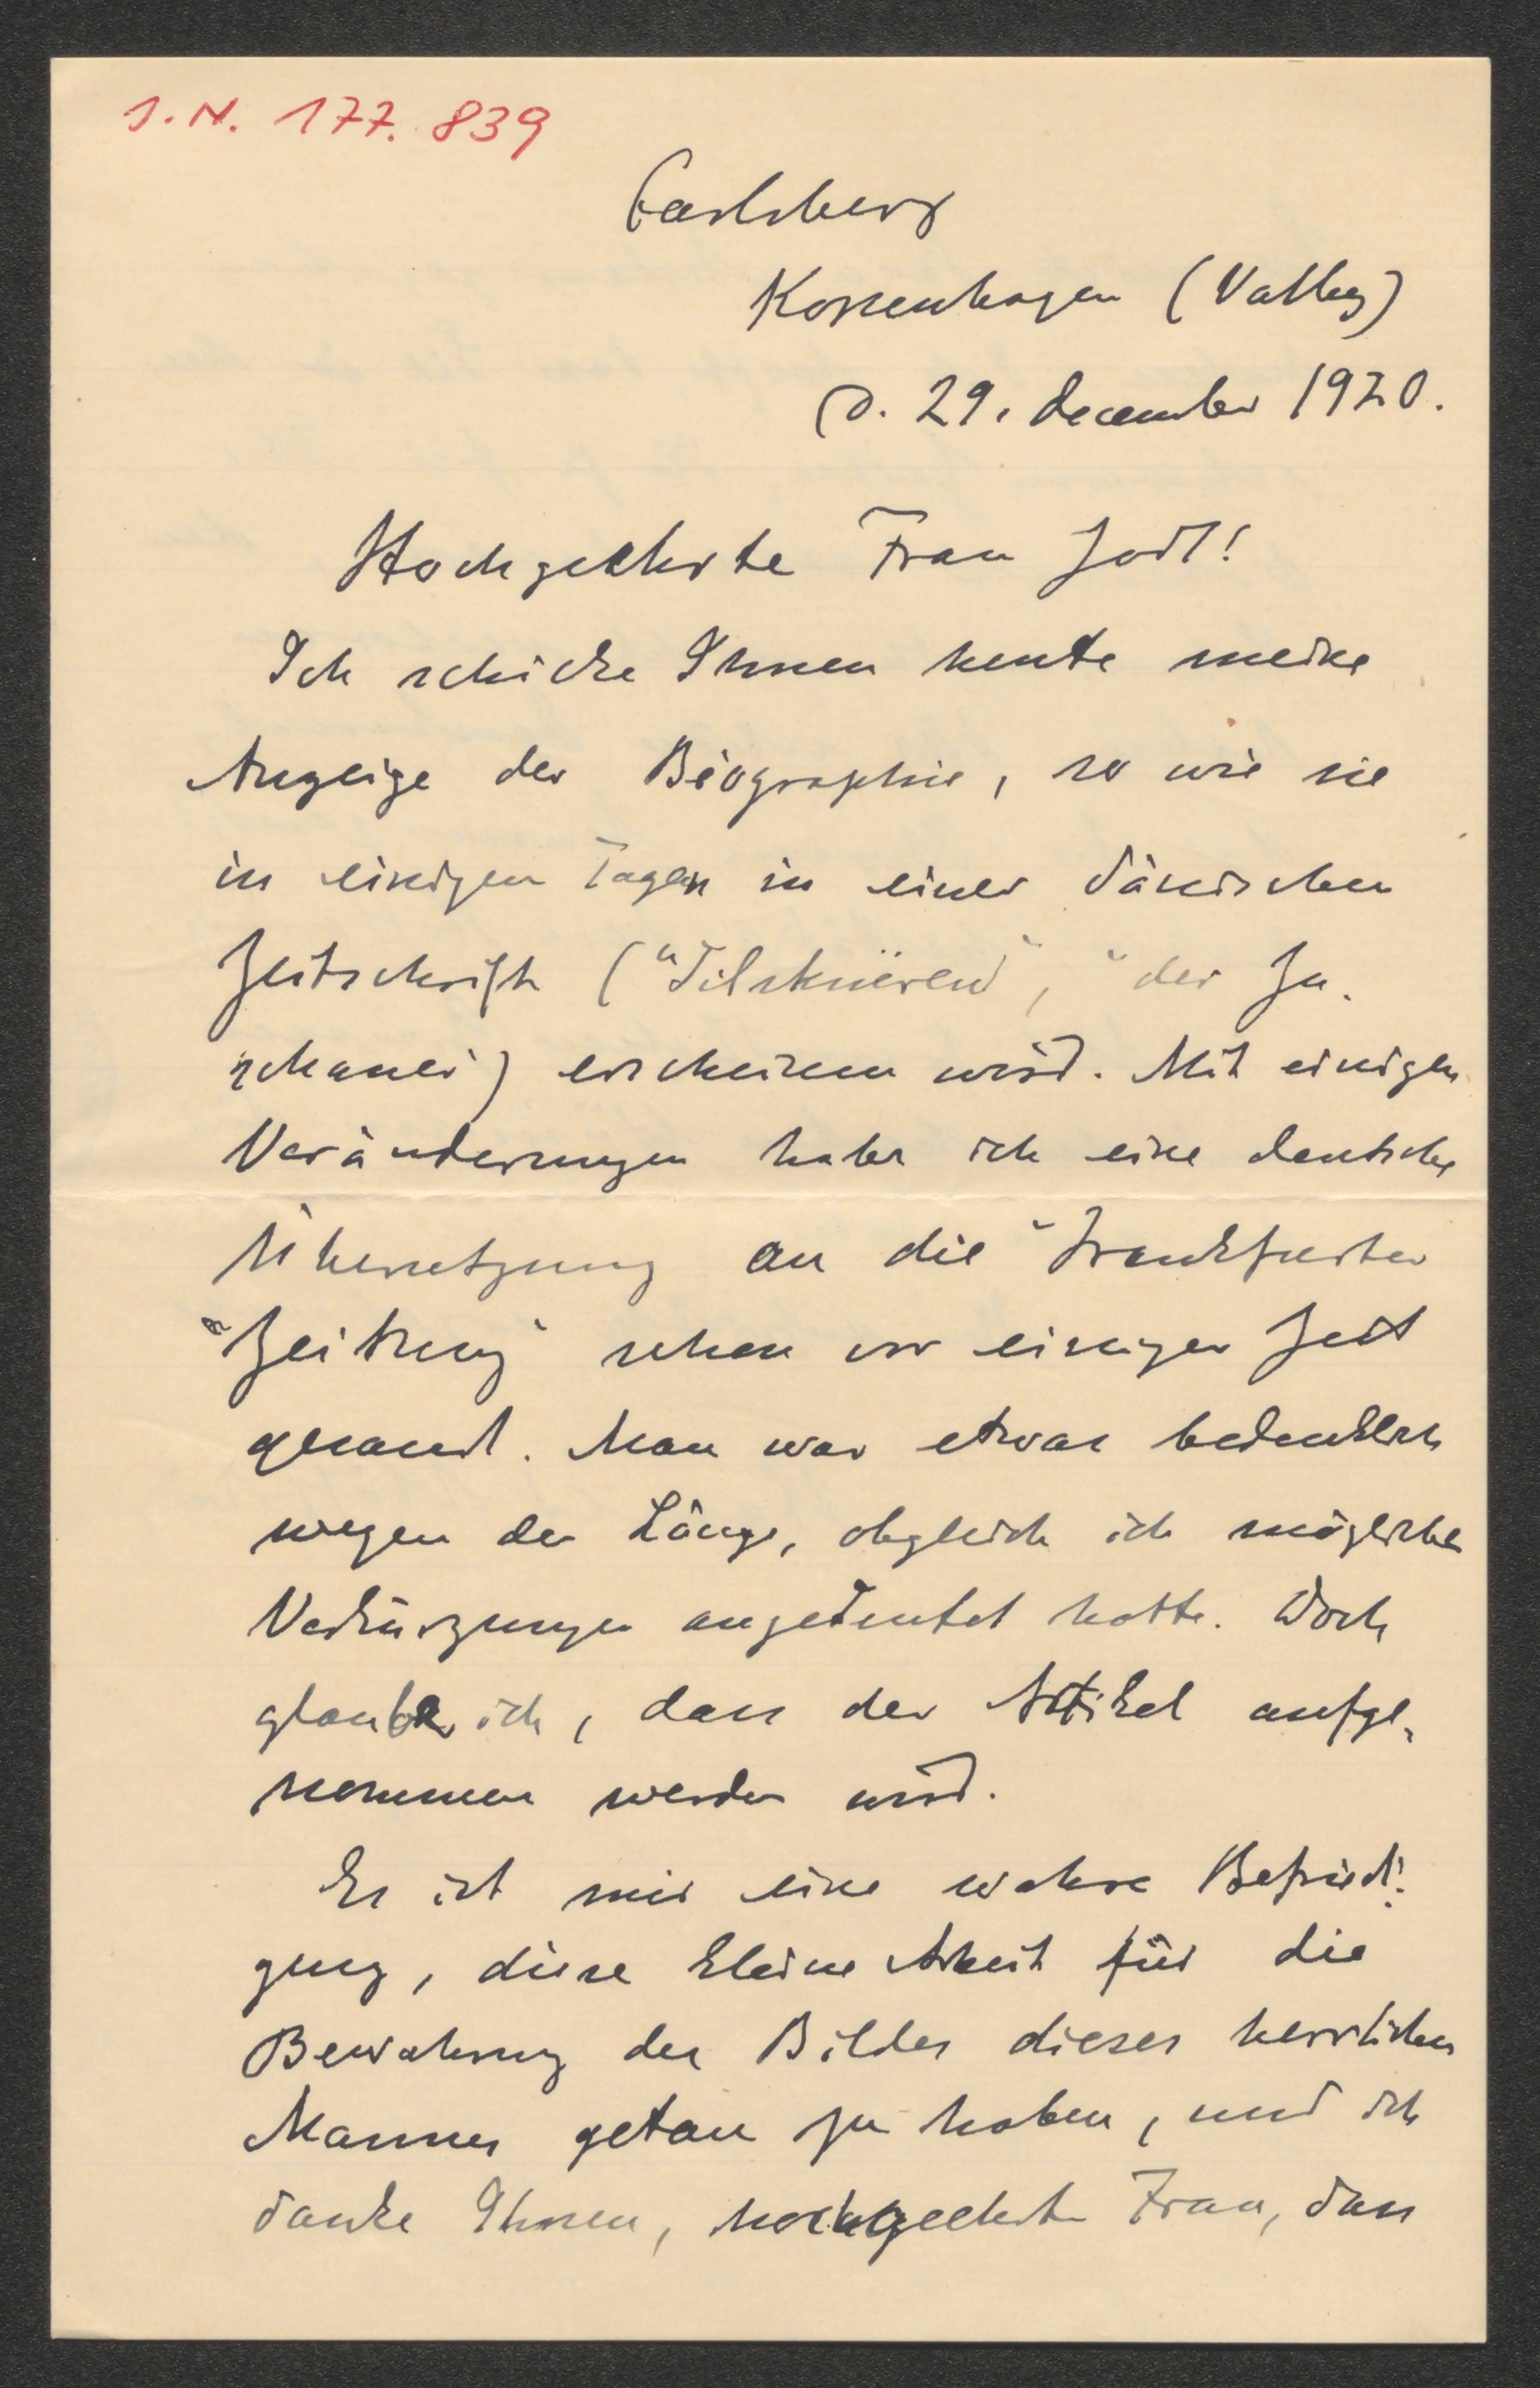 J.N. 177.839
Carlsberg
Kopenhagen (Valby)
D. 29. december 1920.
Hochgeehrte Frau Jodl!
Ich schicke Ihnen heute meine
Anzeige der Biographie, so wie sie
in einigen Tagen in einer dänischen
Zeitschrift ("Tilskueren", "der Zu-
schauer) erscheinen wird. Mit einigen
Veränderungen habe ich eine deutsche
Übersetzung an die "Frankfurter
"Zeitung" schon vor einiger Zeit
gesandt. Man war etwas bedenklich
wegen der Länge, obgleich ich mögliche
Verkürzungen angedeutet hatte. Doch
glaube ich, dass der Artikel aufge-
nommen werden wird.
Es ist mir eine wahre Befriedi-
gung, diese kleine Arbeit für die
Bewahrung des Bildes dieses herrlichen
Mannes getan zu haben, und ich
danke Ihnen, hochgeehrte Frau, dass